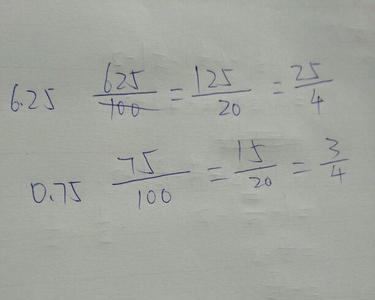 6.25 625/100 = 125/20 = 25/4
0.75 75/100 = 15/20 = 3/4